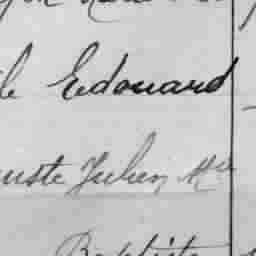 le Edouard
uste Julien Mie
Baptiste